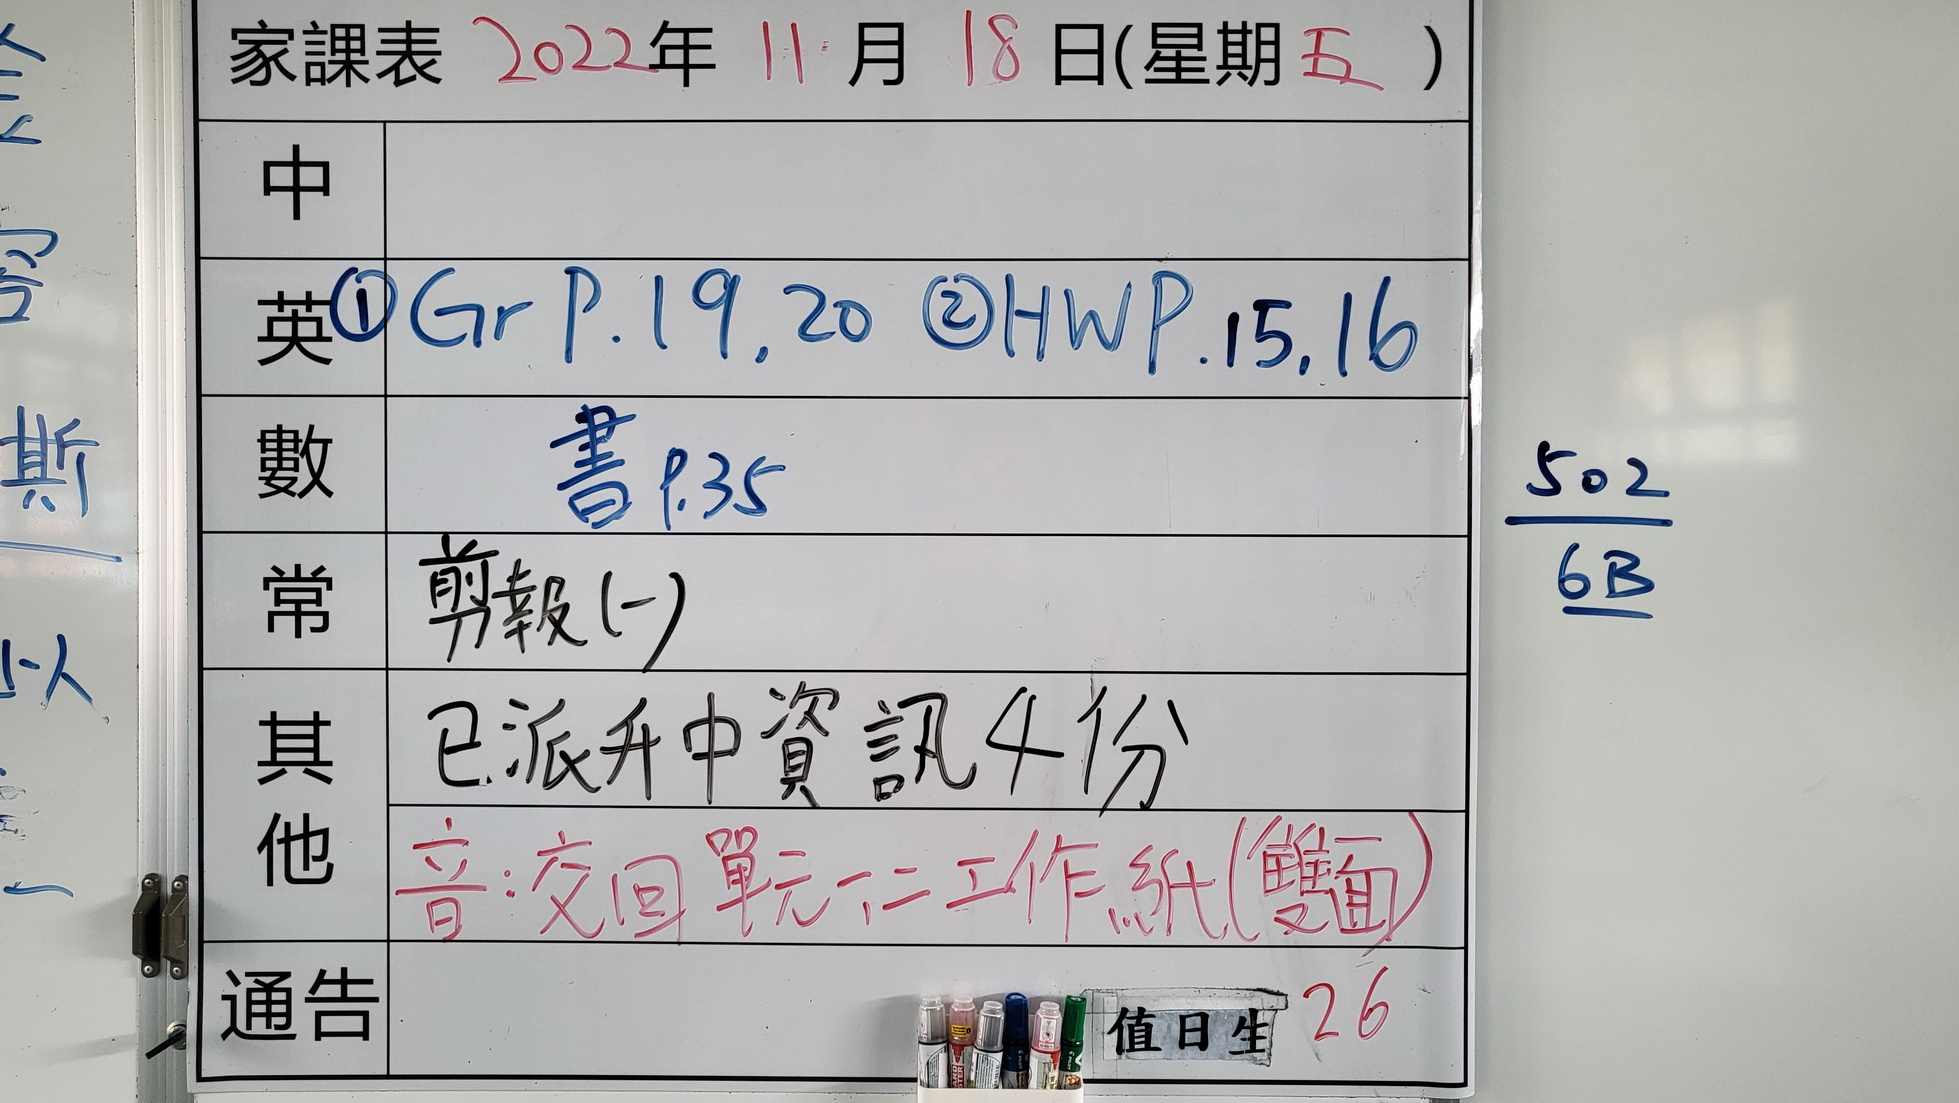 家課表 2022年 11月 18日(星期五)
中
英 ①Gr P.19,20 ②HW P.15,16
數 書 P.35
常 剪報(一)
其他
已派升中資訊4份
音:交回單元一,二工作紙(雙面)
通告
值日生 26
502
6B
斯